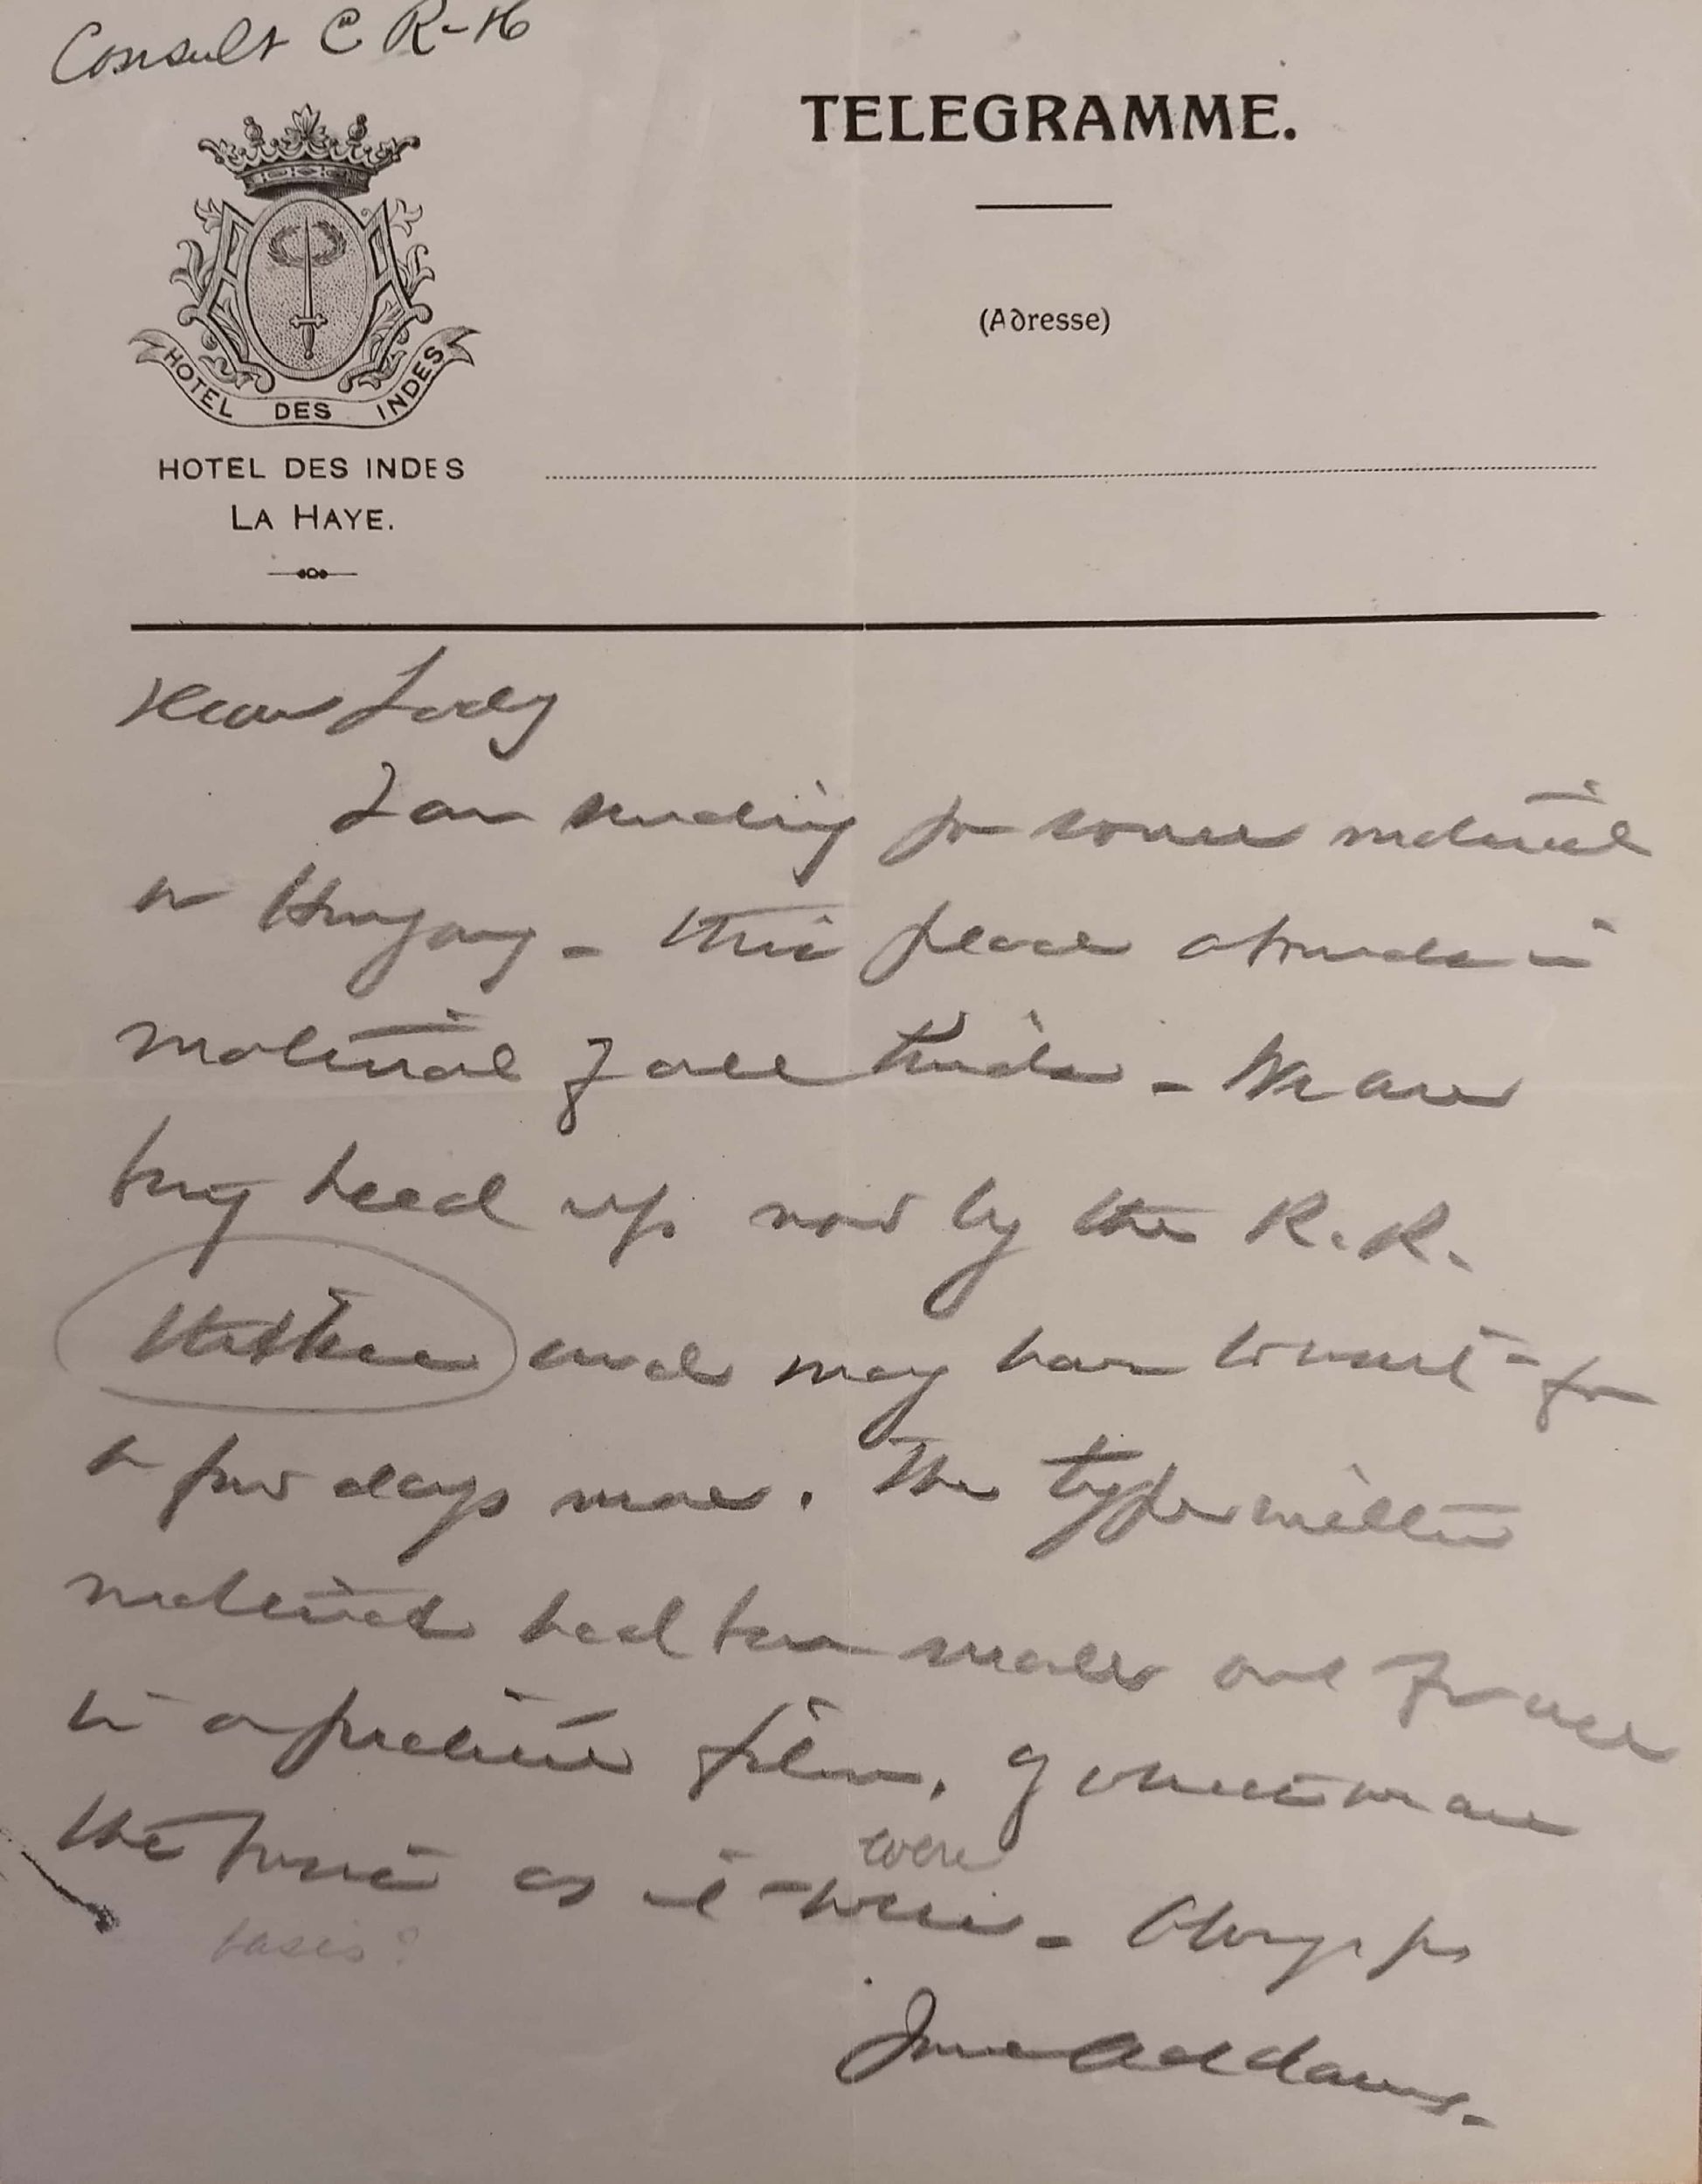 Consult C R-H
TELEGRAMME.
(Adresse)
HOTEL DES INDES
HOTEL DES INDES
LA HAYE.
Dear Lady
I am sending for some material
on Hungary - this place abounds in
material of all kinds - We are
being held up now by the R.R.
and may have to wait - for
a few days more. The typewritten
material had been made out for use
in a positive form. Of course we are
the as it were
were - Always yrs
basis?
Jane Addams.